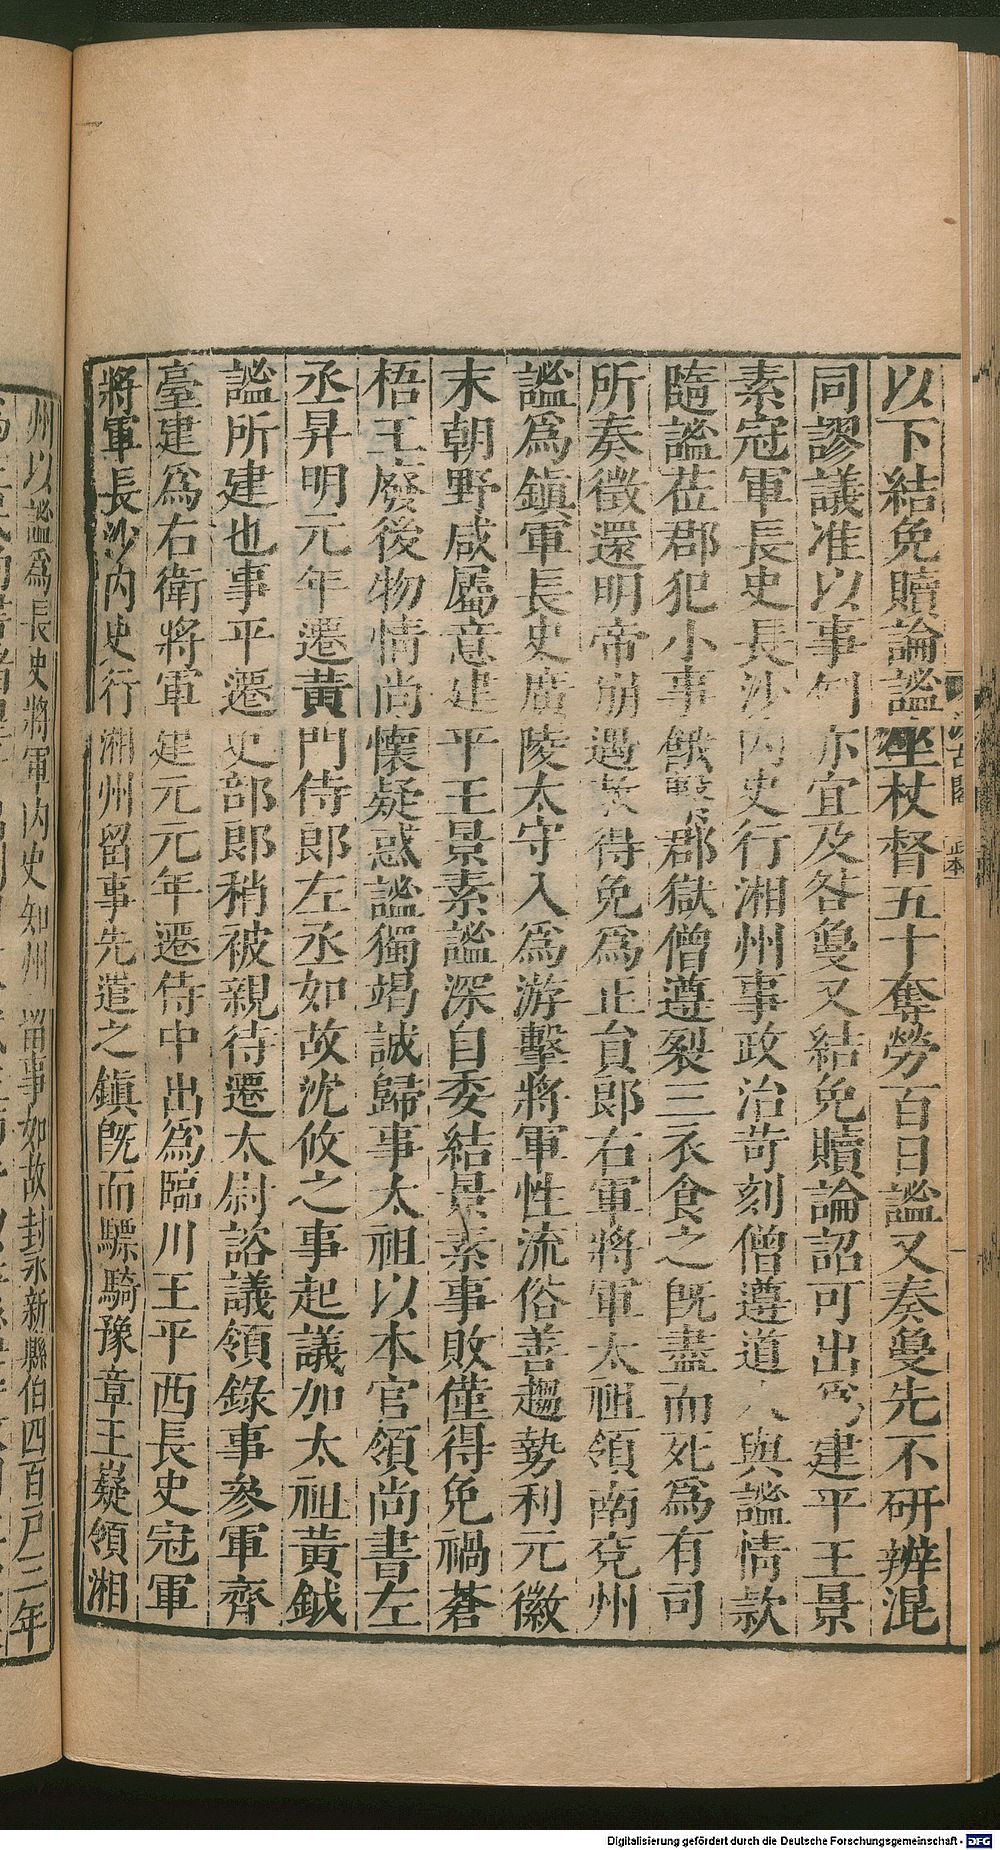 以下結免贖論謐坐杖督五十奪勞百日謐又奏夐先不研辨混
同謬議准以事例亦宜及咎夐又結免贖論詔可出爲建平王景
素冠軍長史長沙內史行湘州事政治苛刻僧遵道人與謐情款
隨謐莅郡犯小事餓繫郡獄僧遵裂三衣食之旣盡而死爲有司
所奏徵還明帝崩遇赦得免爲正員郎右軍將軍太祖領南兗州
謐爲鎭軍長史廣陵太守入爲游擊將軍性流俗善趨勢利元徽
末朝野咸屬意建平王景素謐深自委結景素事敗僅得免禍蒼
梧王廢後物情尚懷疑惑謐獨竭誠歸事太祖以本官領尚書左
丞昇明元年遷黃門侍郎左丞如故沈攸之事起議加太祖黃鉞
謐所建也事平遷吏部郎稍被親待遷太尉諮議領錄事參軍齊
臺建爲右衛將軍建元元年遷侍中出爲臨川王平西長史冠軍
將軍長沙內史行湘州留事先遣之鎭旣而驃騎豫章王嶷領湘
州以謐爲長史將軍內史知州留事如故封永新縣伯四百戶三年
汲古閣
Digitalisierung gefördert durch die Deutsche Forschungsgemeinschaft - DFG